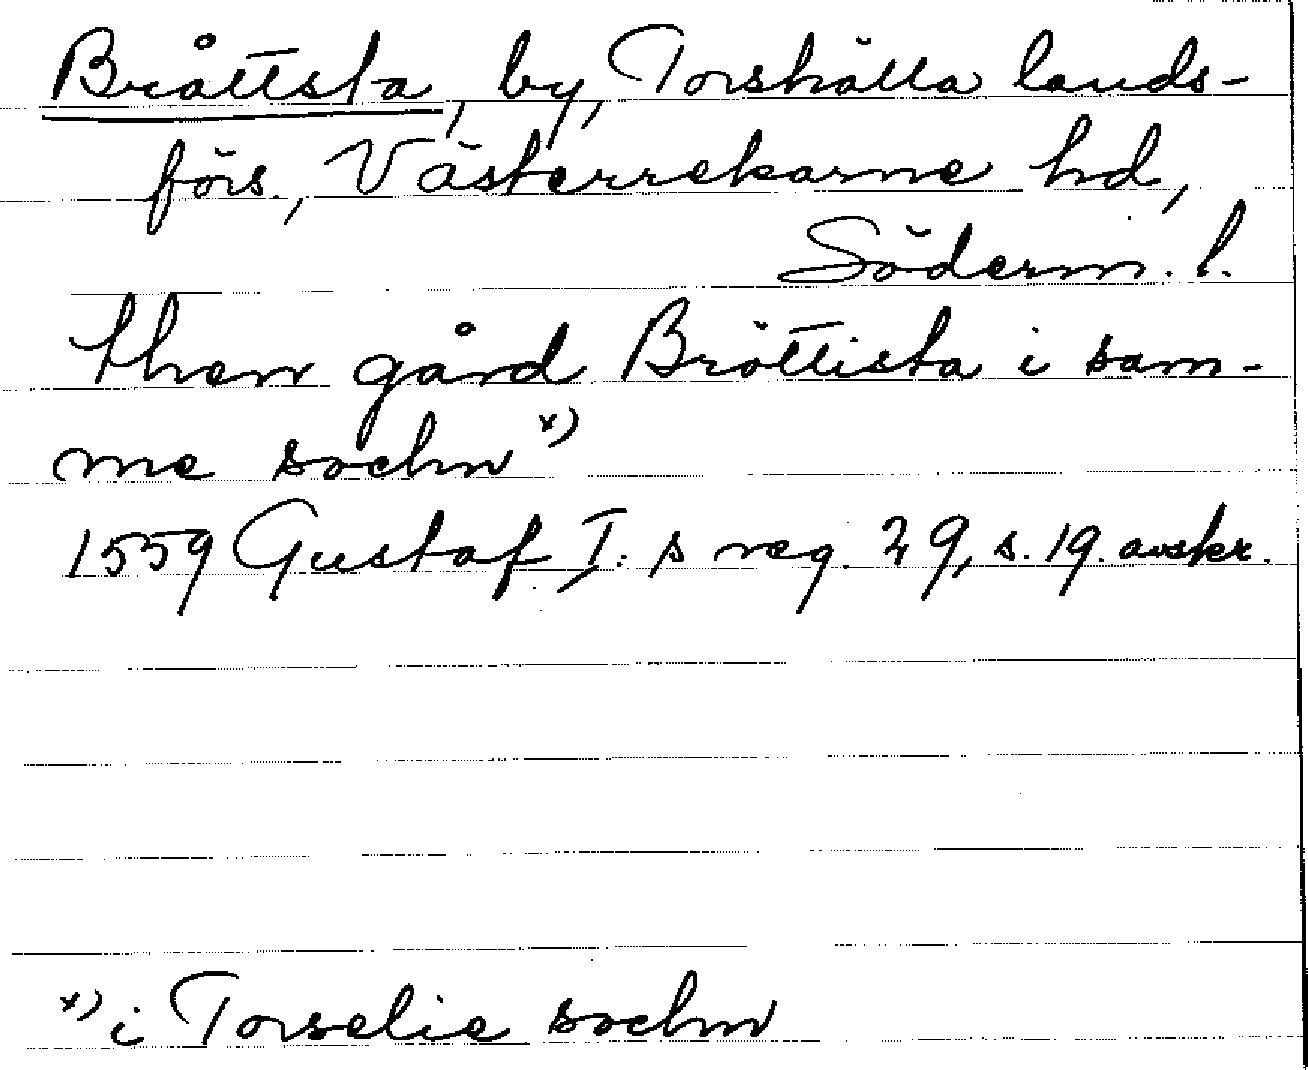 Bråttsta, by, Torshälla lands-
förs., Västerrekarne hd,
Söderm. l.
then gård Bröttista i sam-
me sochn x)
1559 Gustaf I:s reg. 29, s. 19. avskr.
x) i Torselie sochn